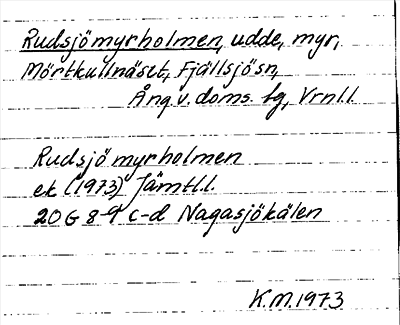 Rudsjömyrholmen, udde, myr,
Mörtkullnäset, Fjällsjösn,
Ång.v. doms. tg, Vrnl.l.
Rudsjömyrholmen
ek (1973) Jämtl.l.
20G 8-9 c-d Nagasjökälen
K.M.1973